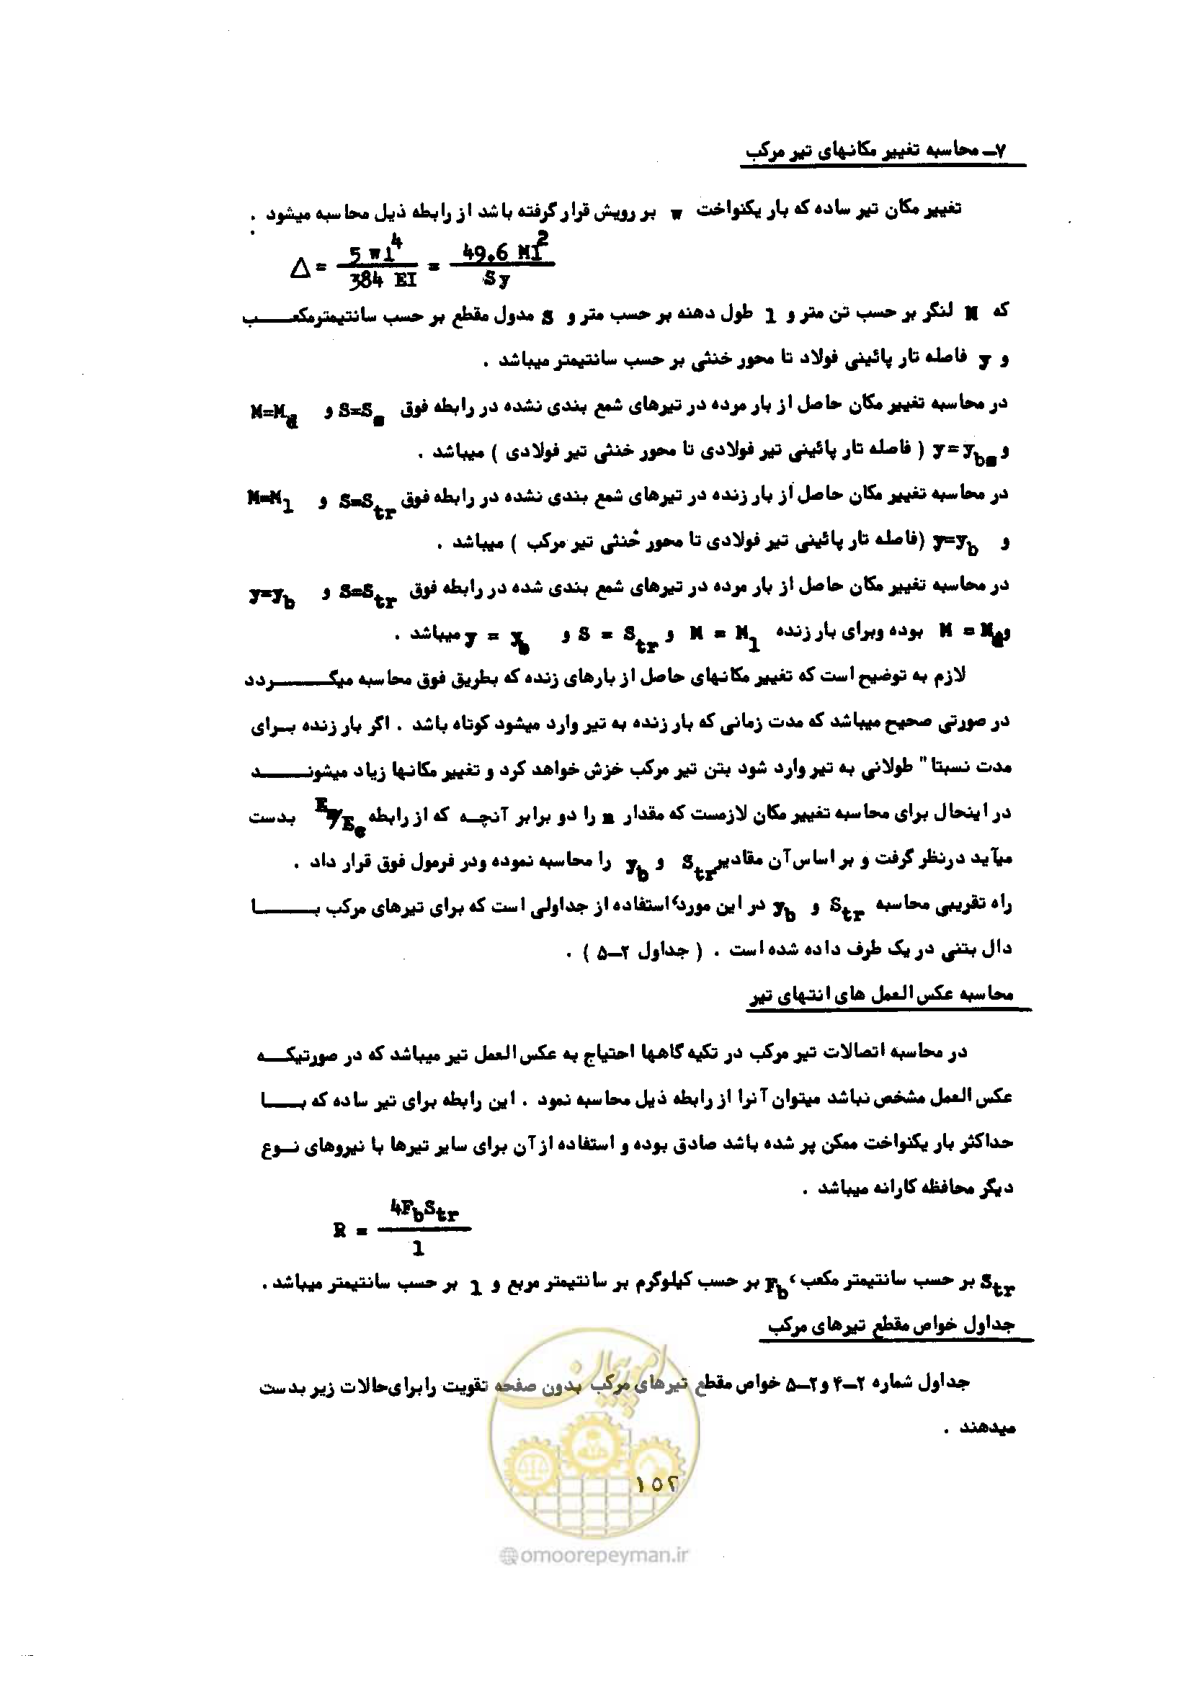 ۷ـ محاسبه تغییر مکانهای تیر مرکب
تغییر مکان تیر ساده که بار یکنواخت w بر رویش قرار گرفته باشد از رابطه ذیل محاسبه میشود .
Δ = 5 w l^4 / 384 EI = 49.6 Ml^2 / Sy
که M لنگر بر حسب تن متر و l طول دهنه بر حسب متر و S مدول مقطع بر حسب سانتیمترمکعب
و y فاصله تار پائینی فولاد تا محور خنثی بر حسب سانتیمتر میباشد .
در محاسبه تغییر مکان حاصل از بار مرده در تیرهای شمع بندی نشده در رابطه فوق S=S_s و M=M_d
و y=y_bs ( فاصله تار پائینی تیر فولادی تا محور خنثی تیر فولادی ) میباشد .
در محاسبه تغییر مکان حاصل از بار زنده در تیرهای شمع بندی نشده در رابطه فوق S=S_tr و M=M_l
و y=y_b (فاصله تار پائینی تیر فولادی تا محور خنثی تیر مرکب ) میباشد .
در محاسبه تغییر مکان حاصل از بار مرده در تیرهای شمع بندی شده در رابطه فوق S=S_tr و y=y_b
و M = M_d بوده وبرای بار زنده M = M_l و S = S_tr و y = y_b میباشد .
لازم به توضیح است که تغییر مکانهای حاصل از بارهای زنده که بطریق فوق محاسبه میگردد
در صورتی صحیح میباشد که مدت زمانی که بار زنده به تیر وارد میشود کوتاه باشد . اگر بار زنده برای
مدت نسبتا" طولانی به تیر وارد شود بتن تیر مرکب خزش خواهد کرد و تغییر مکانها زیاد میشوند
در اینحال برای محاسبه تغییر مکان لازمست که مقدار n را دو برابر آنچه که از رابطه E/E_c بدست
میآید درنظر گرفت و بر اساس آن مقادیر S_tr و y_b را محاسبه نموده ودر فرمول فوق قرار داد .
راه تقریبی محاسبه S_tr و y_b در این مورد، استفاده از جداولی است که برای تیرهای مرکب با
دال بتنی در یک طرف داده شده است . ( جداول ۲ـ۵ ) .
محاسبه عکس العمل های انتهای تیر
در محاسبه اتصالات تیر مرکب در تکیه گاهها احتیاج به عکس العمل تیر میباشد که در صورتیکه
عکس العمل مشخص نباشد میتوان آنرا از رابطه ذیل محاسبه نمود . این رابطه برای تیر ساده که با
حداکثر بار یکنواخت ممکن پر شده باشد صادق بوده و استفاده از آن برای سایر تیرها با نیروهای نوع
دیگر محافظه کارانه میباشد .
R = 4F_bS_tr / l
S_tr بر حسب سانتیمتر مکعب، F_b بر حسب کیلوگرم بر سانتیمتر مربع و l بر حسب سانتیمتر میباشد .
جداول خواص مقطع تیرهای مرکب
جداول شماره ۲ـ۴ و ۲ـ۵ خواص مقطع تیرهای مرکب بدون صفحه تقویت را برای حالات زیر بدست
میدهند .
امور پیمان
۱۵۲
@omoorepeyman.ir